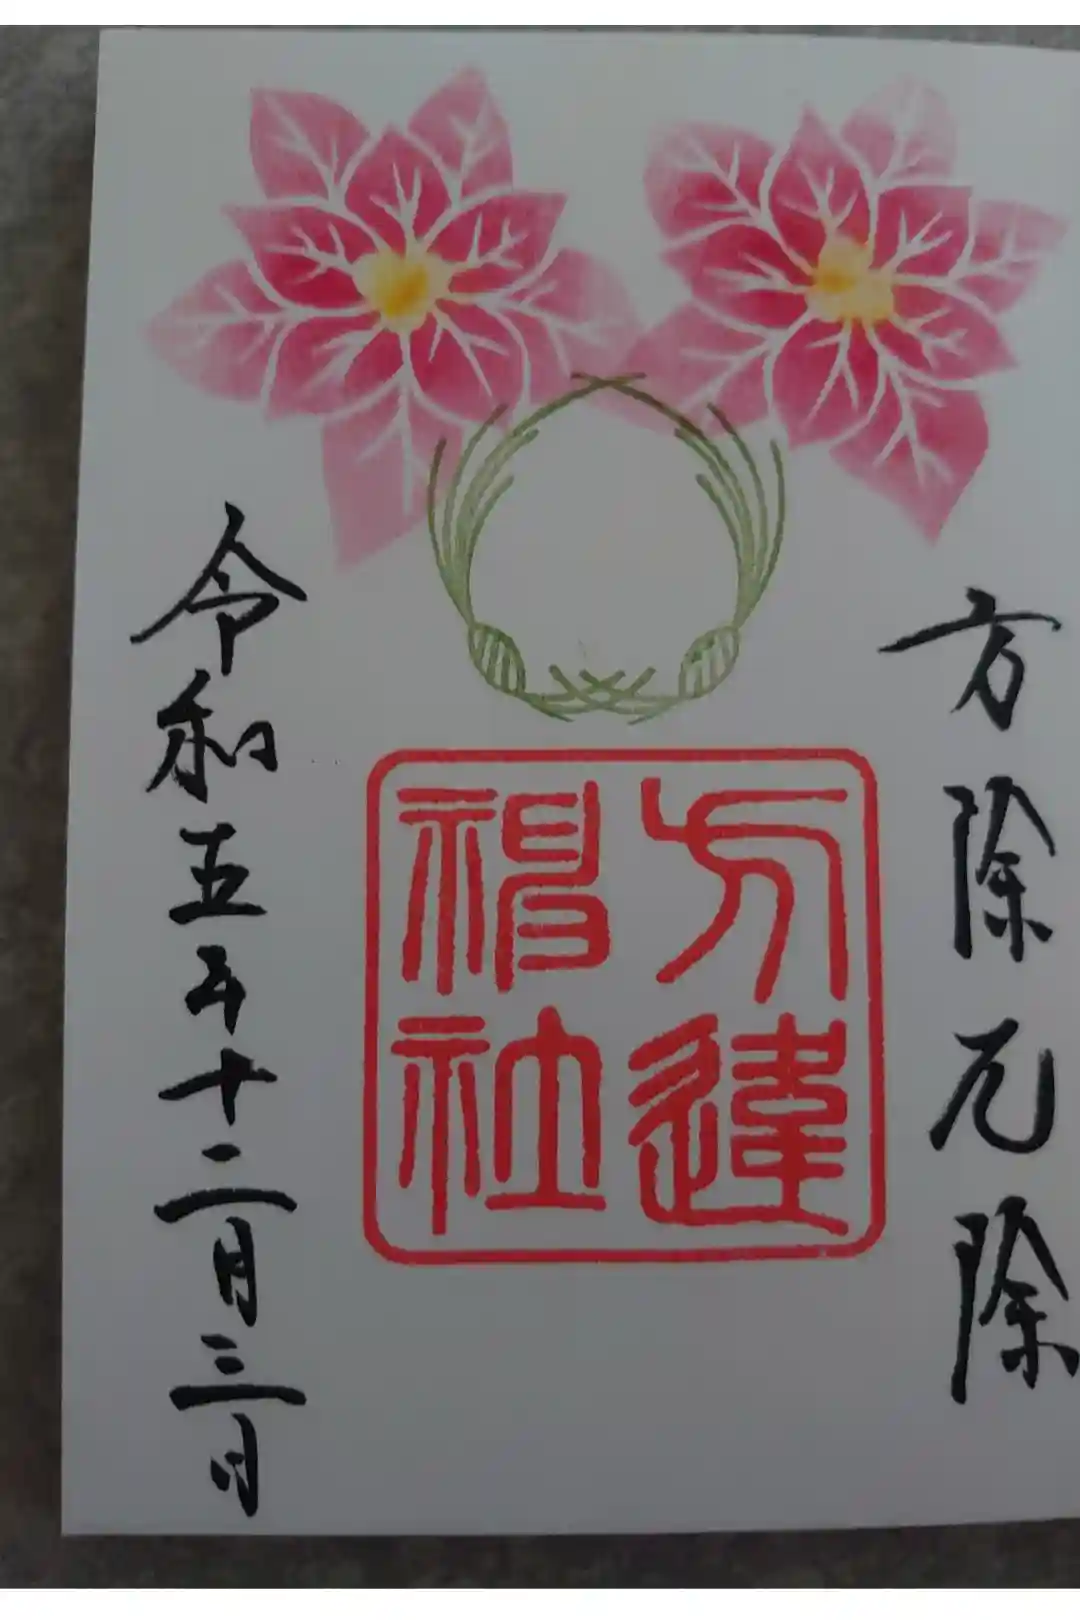 方除元除
方違
神社
令和五年十二月三日